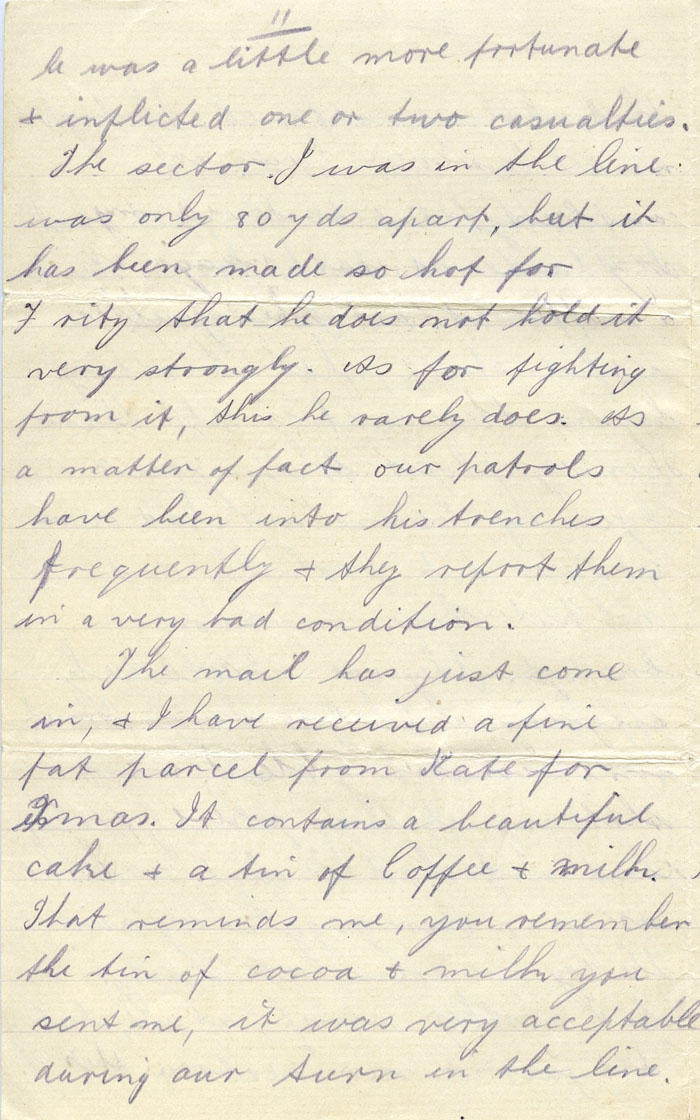 11
he was a little more fortunate
+ inflicted one or two casualties.
The sector I was in the line
was only 80 yds apart, but it
has been made so hot for
Fritz that he does not hold it
very strongly. As for fighting
from it, this he rarely does. As
a matter of fact our patrols
have been into his trenches
frequently + they report them
in a very bad condition.
The mail has just come
in, + I have received a fine
fat parcel from Kate for
Xmas. It contains a beautiful
cake + a tin of Coffee + milk.
That reminds me, you remember
the tin of cocoa + milk you
sent me, it was very acceptable
during our turn in the line.